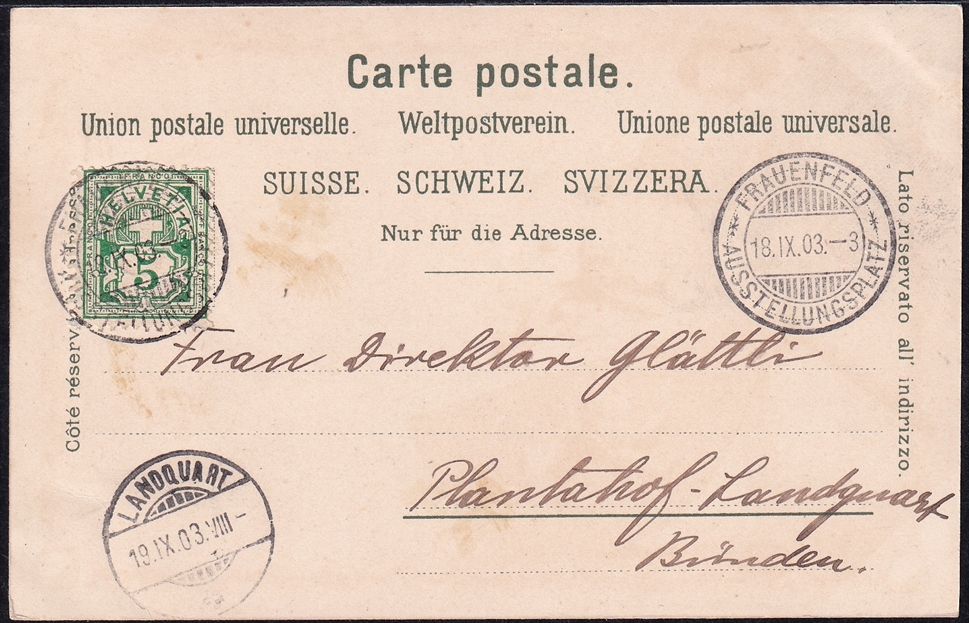 Carte postale.
Union postale universelle. Weltpostverein. Unione postale universale.
SUISSE. SCHWEIZ. SVIZZERA.
Nur für die Adresse.
FRANCO
HELVETIA
5
FRAUENFELD
18.IX.03.–3
AUSSTELLUNGSPLATZ
Côté réserv
Lato riservato all' indirizzo.
Frau Direktor Glättli
Plantahof-Landquart
Bünden.
LANDQUART
19.IX.03.VIII–